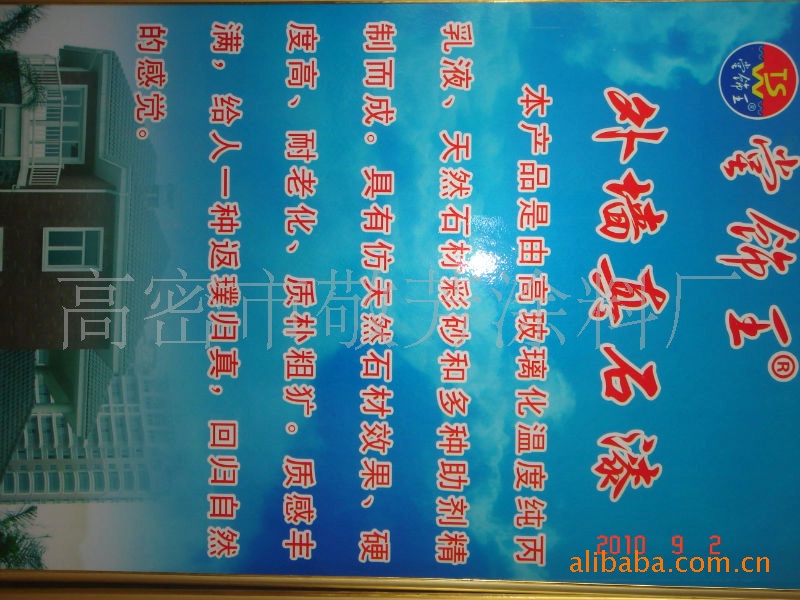 TS
堂饰王®
堂饰王®
外墙真石漆
本产品是由高玻璃化温度纯丙
乳液、天然石材彩砂和多种助剂精
制而成。具有仿天然石材效果、硬
度高、耐老化、质朴粗犷。质感丰
满，给人一种返璞归真，回归自然
的感觉。
高密市敬芳涂料厂
2010 9 2
alibaba.com.cn